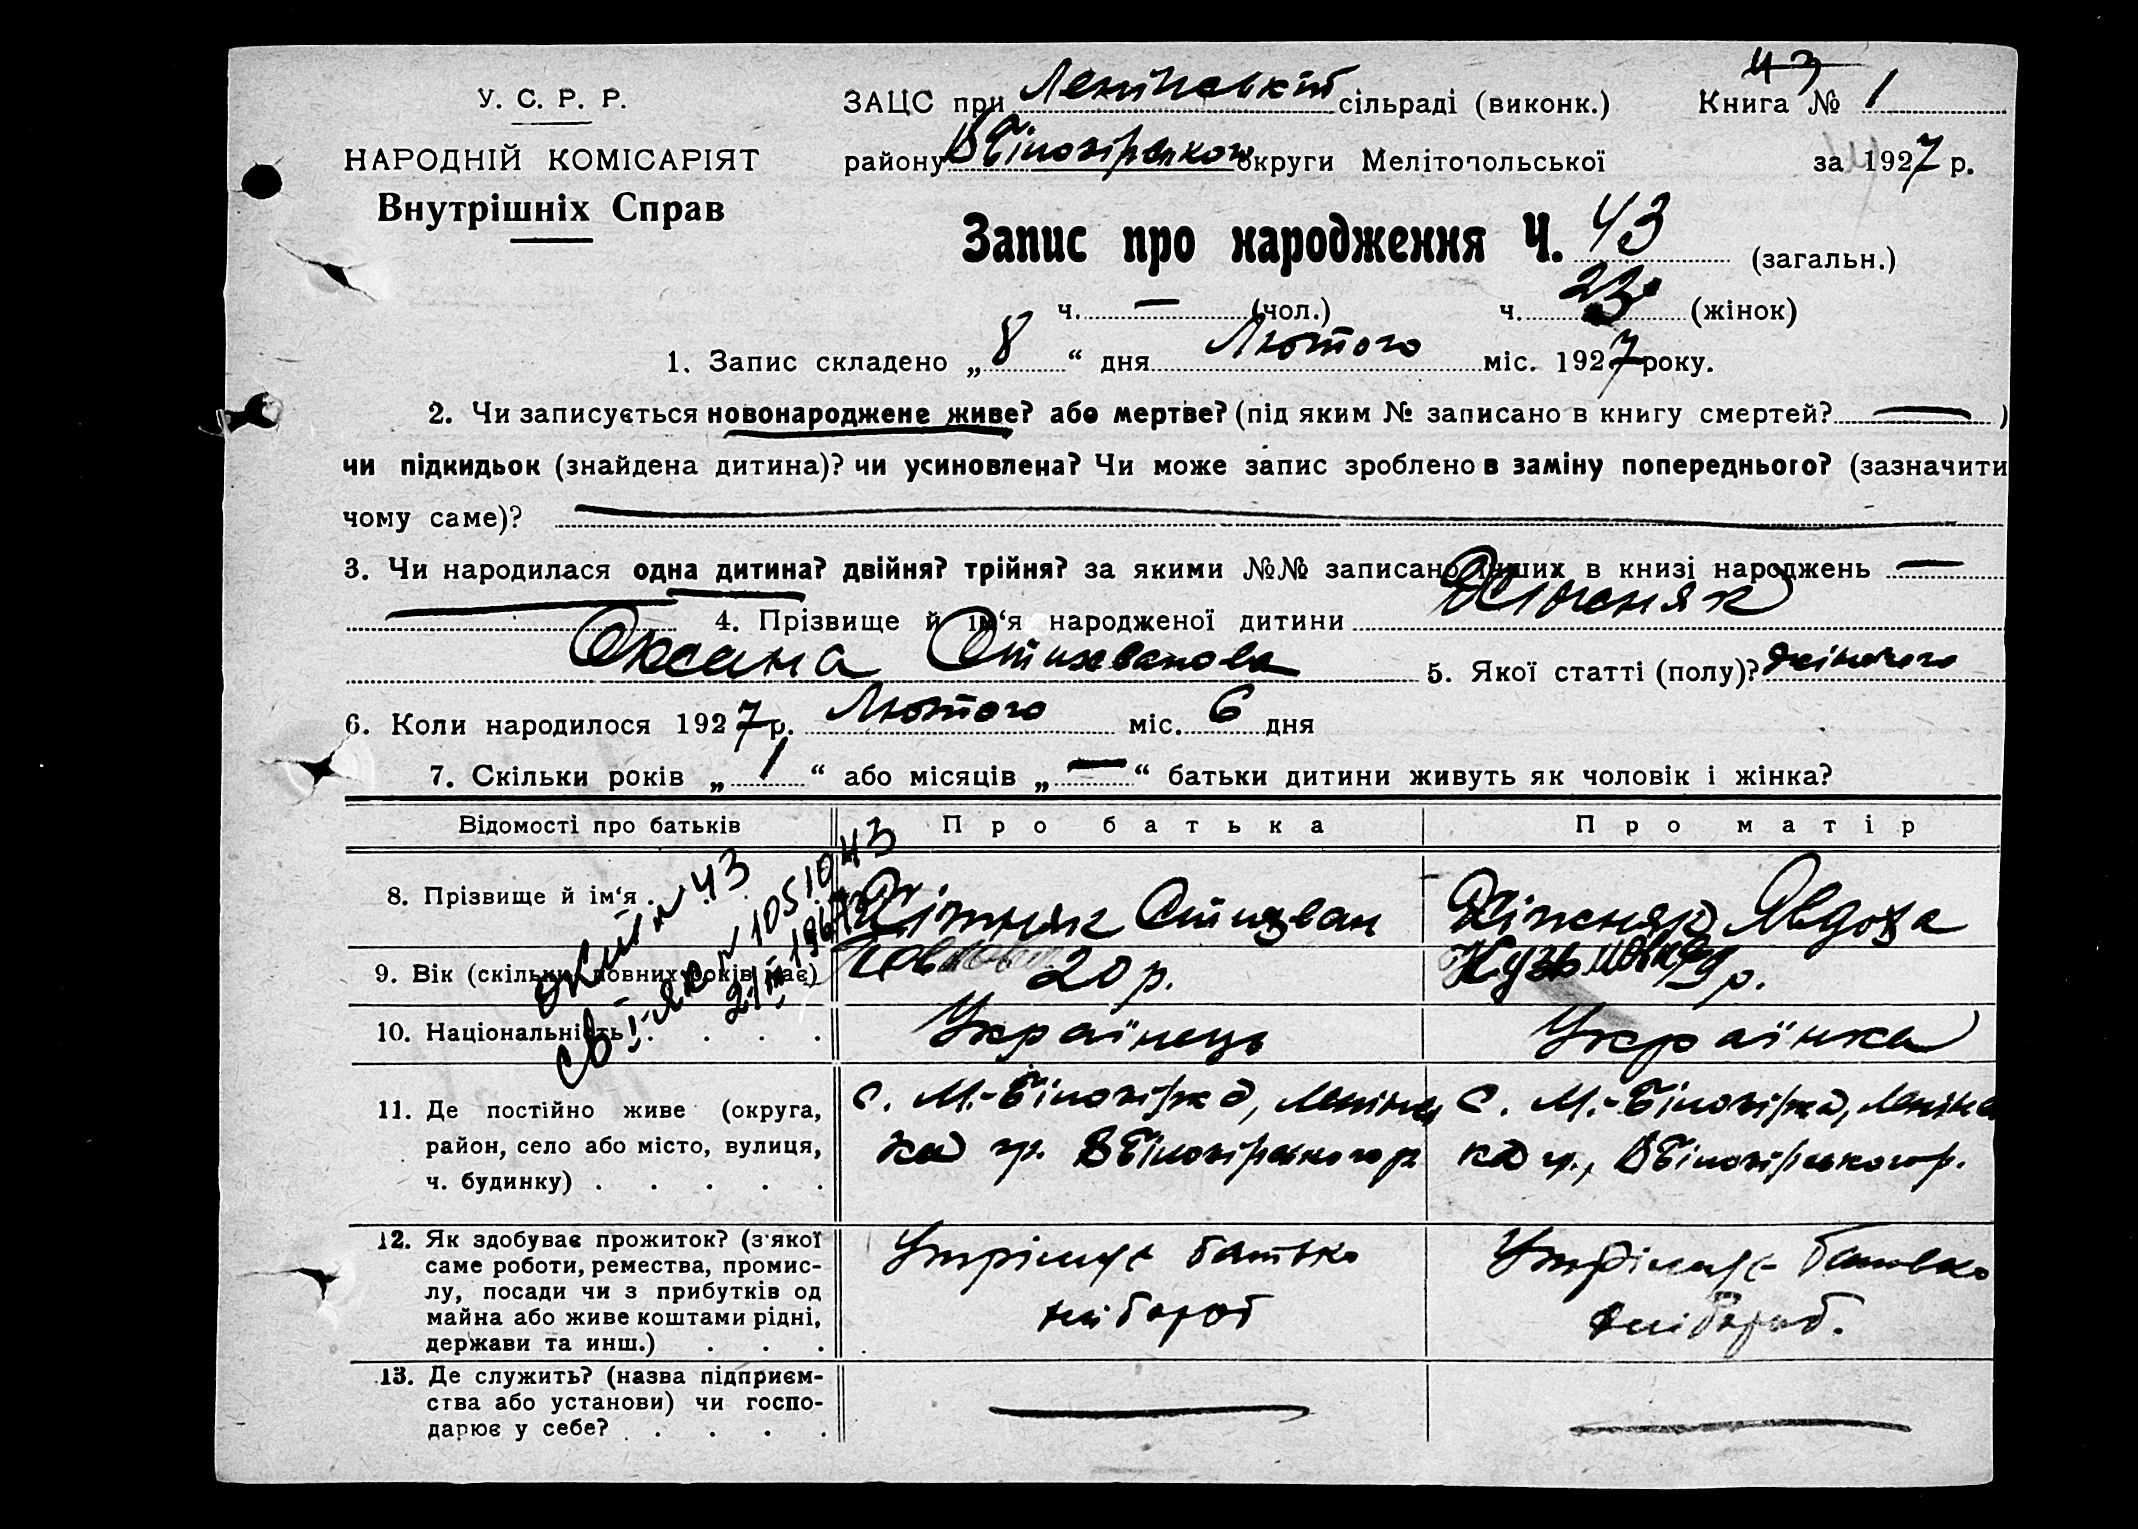 43
У. С. Р. Р.
ЗАЦС при Ленінській сільраді (виконк.) Книга № 1
НАРОДНІЙ КОМІСАРІЯТ
району В Білозірського округи Мелітопольської за 1927 р.
Внутрішніх Справ
Запис про народження Ч. 43 (загальн.)
ч. — (чол.) ч. 23 (жінок)
1. Запис складено „ 8 “ дня Лютого міс. 1927 року.
2. Чи записується новонароджене живе? або мертве? (під яким № записано в книгу смертей? — )
чи підкидьок (знайдена дитина)? чи усиновлена? Чи може запис зроблено в заміну попереднього? (зазначити
чому саме)?
3. Чи народилася одна дитина? двійня? трійня? за якими №№ записано інших в книзі народжень —
4. Прізвище й ім‘я народженої дитини Жіжняк
Оксана 5. Якої статті (полу)? жіночого
6. Коли народилося 1927 р. Лютого міс. 6 дня
7. Скільки років „ 1 “ або місяців „ — “ батьки дитини живуть як чоловік і жінка?
Відомості про батьків Про батька Про матір
8. Прізвище й ім‘я . . Явдоха
9. Вік (скільки повних років має) 20 р. Кузьмовна 19 р.
10. Національність . . . . Українець Українка
11. Де постійно живе (округа,
район, село або місто, вулиця,
ч. будинку) . . . . .
с. М.-Білозірка, Ленінс
ка гр. В Білозірського р.
с. М.-Білозірка, Ленінс
ка гр., В Білозірського р.
12. Як здобуває прожиток? (з‘якої
саме роботи, ремества, промис-
лу, посади чи з прибутків од
майна або живе коштами рідні,
держави та инш.) . . .
Утрімує батько
хлібороб
Утрімує батько
хлібороб.
13. Де служить? (назва підприєм-
ства або установи) чи госпо-
дарює у себе? . . . .